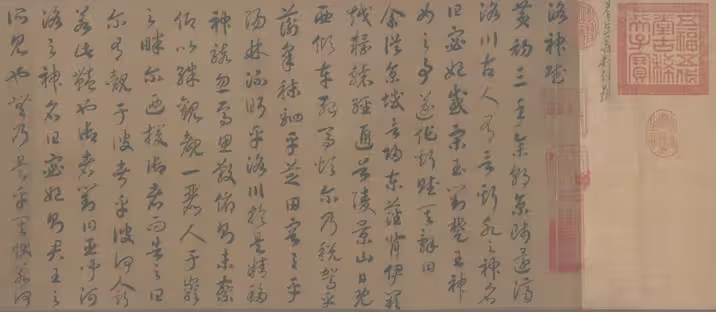 五福五代堂古稀天子寶
洛神賦
黄初三年余朝京師還濟
洛川古人有言斯水之神名
曰宓妃感宋玉對楚王神
女之事遂作斯賦其辭曰
余從京域言歸東藩背伊闕
越轘轅經通谷陵景山日既
西傾車殆馬煩尔乃税駕乎
蘅皋秣駟乎芝田容與乎
陽林流眄乎洛川於是精移
神駭忽焉思散俯則未察
仰以殊觀覩一麗人于巖
之畔尔迺援御者而告之曰
尔有覿于彼者乎彼何人斯
若此豔也御者對曰臣聞河
洛之神名曰宓妃則君王之
所見也無乃是乎其狀若何